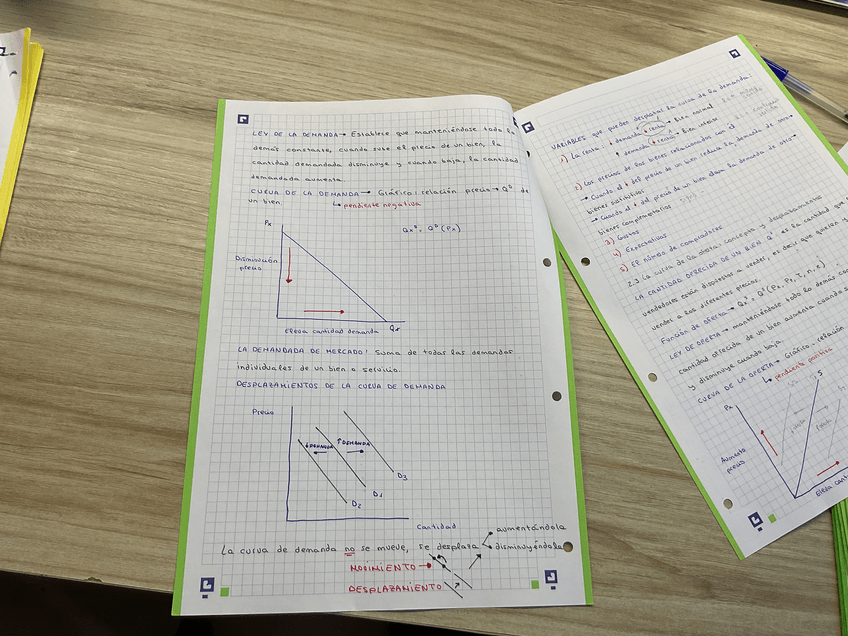 LEY DE LA DEMANDA → Establece que manteniéndose todo lo
demás constante, cuando sube el precio de un bien, la
cantidad demandada disminuye y cuando baja, la cantidad
demandada aumenta.
CURVA DE LA DEMANDA → Gráfico: relación precio → Qᴰ de
un bien. ↳ pendiente negativa
Px
Qxᴰ = Qᴰ (Px)
Disminución
precio
Eleva cantidad demanda Qx
LA DEMANDADA DE MERCADO: Suma de todas las demandas
individuales de un bien o servicio.
DESPLAZAMIENTOS DE LA CURVA DE DEMANDA
Precio
↓DEMANDA ↑DEMANDA
D3
D1
D2
Cantidad
aumentándola
La curva de demanda no se mueve, se desplaza disminuyéndola
MOVIMIENTO →
DESPLAZAMIENTO
VARIABLES que pueden desplazar la curva de la demanda:
1) La renta: ↑ demanda ↑ renta → Bien normal
↑ demanda ↓ renta → Bien inferior
2) Los precios de los bienes relacionados con él
→ Cuando el ↓ del precio de un bien reduce la demanda de otro →
bienes sustitutivos
→ Cuando el ↓ del precio de un bien eleva la demanda de otro →
bienes complementarios
3) Gustos
4) Expectativas
5) El número de compradores
2.3 La curva de la oferta: concepto y desplazamientos
LA CANTIDAD OFRECIDA DE UN BIEN Qˢ es la cantidad que
vendedores están dispuestos a vender, es decir que quieren y
vender a los diferentes precios.
Función de oferta →
LEY DE OFERTA → manteniéndose todo lo demás
cantidad ofrecida de un bien aumenta cuando
y disminuye cuando baja.
CURVA DE LA OFERTA → Gráfico: relación
↳ pendiente positiva
Px
S
Aumento
precio
Eleva